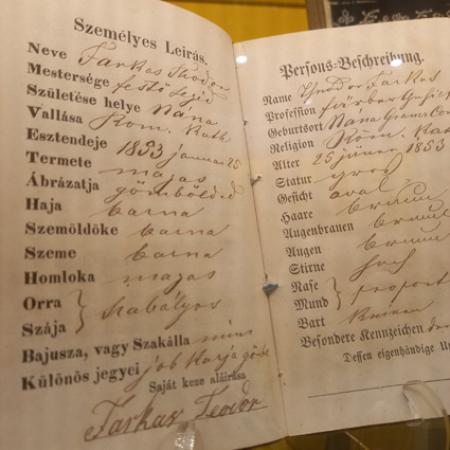 Személyes Leirás.
Neve Farkas Tivodor
Mestersége festő segéd
Születése helye Nána
Vallása Rom. Kath
Esztendeje 1853 januar 25
Termete magas
Ábrázatja gömbölded
Haja barna
Szemöldöke barna
Szeme barna
Homloka magas
Orra
Szája } szabályos
Bajusza, vagy Szakálla nincs
Különös jegyei job karja görbe
Saját keze aláirása
Farkas Teodor
Persons-Beschreibung.
Name Theodor Farkas
Profession Färber
Geburtsort Nána Graner Com
Religion Röm. Kath
Alter 25 jäner 1853
Statur gros
Gesicht oval
Haare braun
Augenbrauen braun
Augen braun
Stirne hoch
Nase
Mund } proport
Bart Keinen
Besondere Kennzeichen
Dessen eigenhändige Un